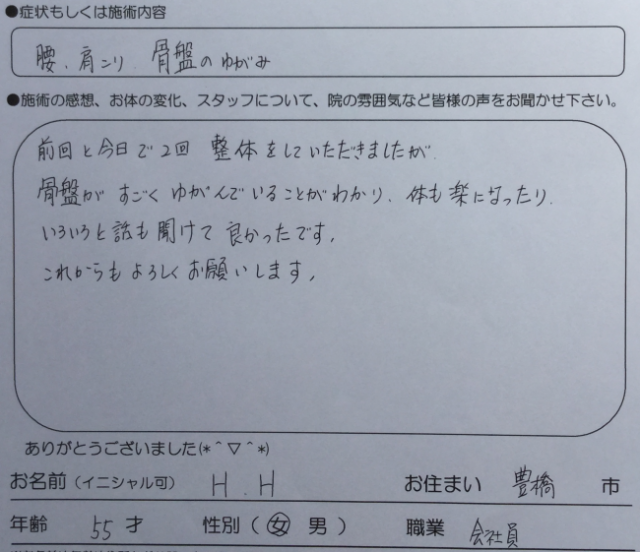 ●症状もしくは施術内容
腰、肩こり 骨盤のゆがみ
●施術の感想、お体の変化、スタッフについて、院の雰囲気など皆様の声をお聞かせ下さい。
前回と今日で2回 整体をしていただきましたが、
骨盤がすごくゆがんでいることがわかり、体も楽になったり、
いろいろと話も聞けて良かったです。
これからもよろしくお願いします。
ありがとうございました(*^▽^*)
お名前（イニシャル可） H.H お住まい 豊橋 市
年齢 55 才 性別（ 女 男 ） 職業 会社員